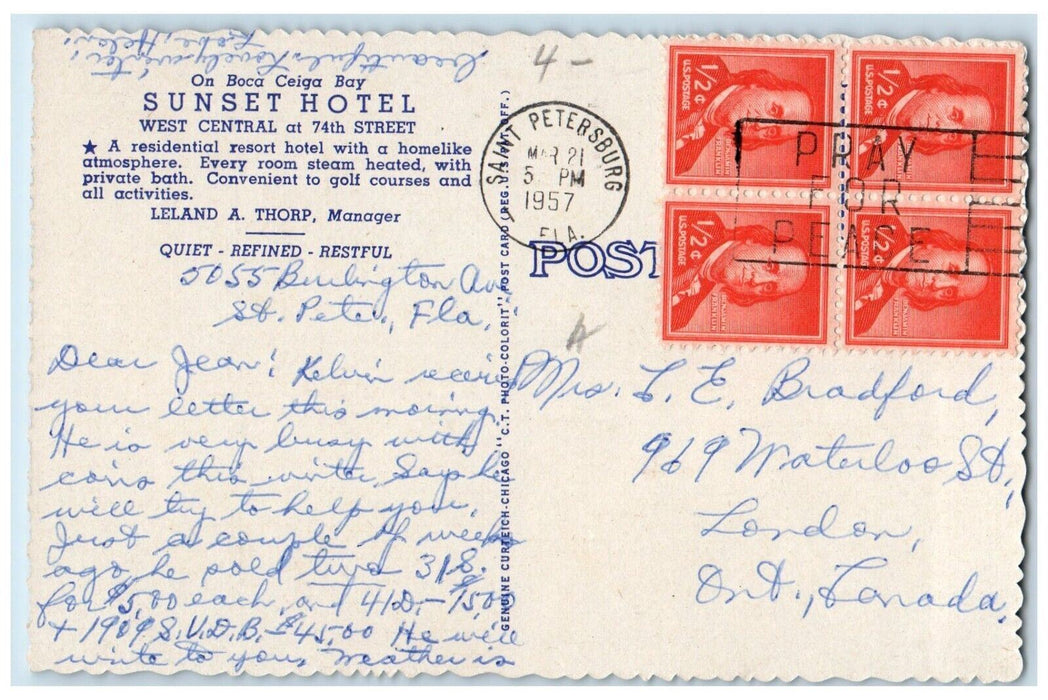 beautiful & lovely winter,
Helen,
On Boca Ceiga Bay
SUNSET HOTEL
WEST CENTRAL at 74th STREET
★ A residential resort hotel with a homelike
atmosphere. Every room steam heated, with
private bath. Convenient to golf courses and
all activities.
LELAND A. THORP, Manager
QUIET - REFINED - RESTFUL
5055 Burlington Av
St. Pete., Fla.
Dear Jean: Kelvin recei
your letter this morning
He is very busy with
coins this winter. Says he
will try to help you.
Just a couple of weeks
ago he sold two 31S.
for $5.00 each, and 41D.-
+ 1909 S.V.D.B.-$45.00 He will
write to you. Weather is
GENUINE CURTEICH-CHICAGO "C.T. PHOTO-COLORIT" POST CARD (REG. U.S. PAT. OFF.)
4 -
SAINT PETERSBURG
MAR 21
5 - PM
1957
FLA.
PRAY
FOR
PEACE
U.S. POSTAGE
1/2¢
BENJAMIN
FRANKLIN
U.S. POSTAGE
1/2¢
BENJAMIN
FRANKLIN
U.S. POSTAGE
1/2¢
BENJAMIN
FRANKLIN
U.S. POSTAGE
1/2¢
BENJAMIN
FRANKLIN
POST
Mrs. L. E. Bradford,
969 Waterloo St.,
London,
Ont., Canada.